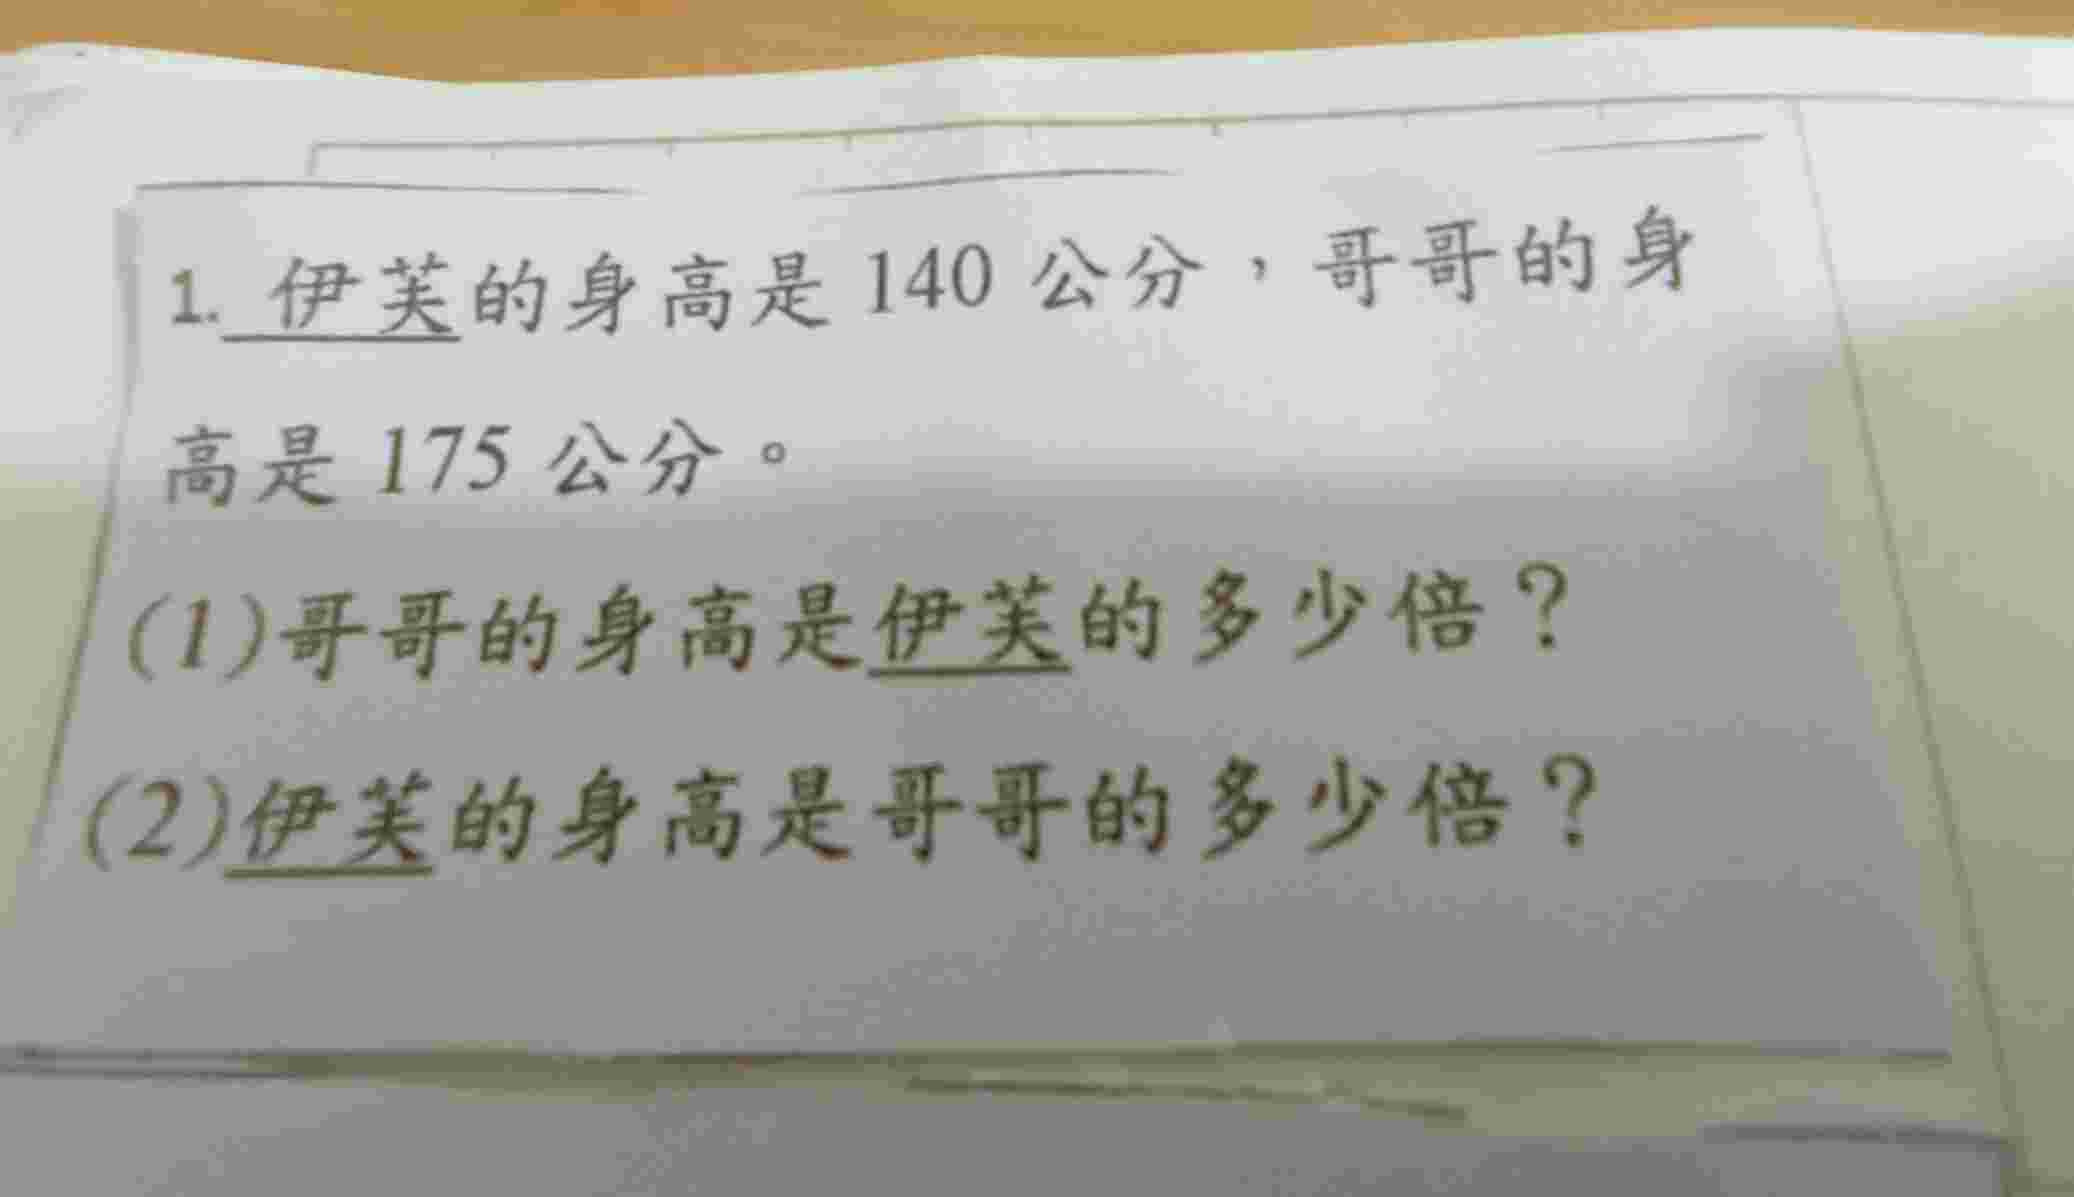 1. 伊芙的身高是 140 公分，哥哥的身
高是 175 公分。
(1)哥哥的身高是伊芙的多少倍？
(2)伊芙的身高是哥哥的多少倍？